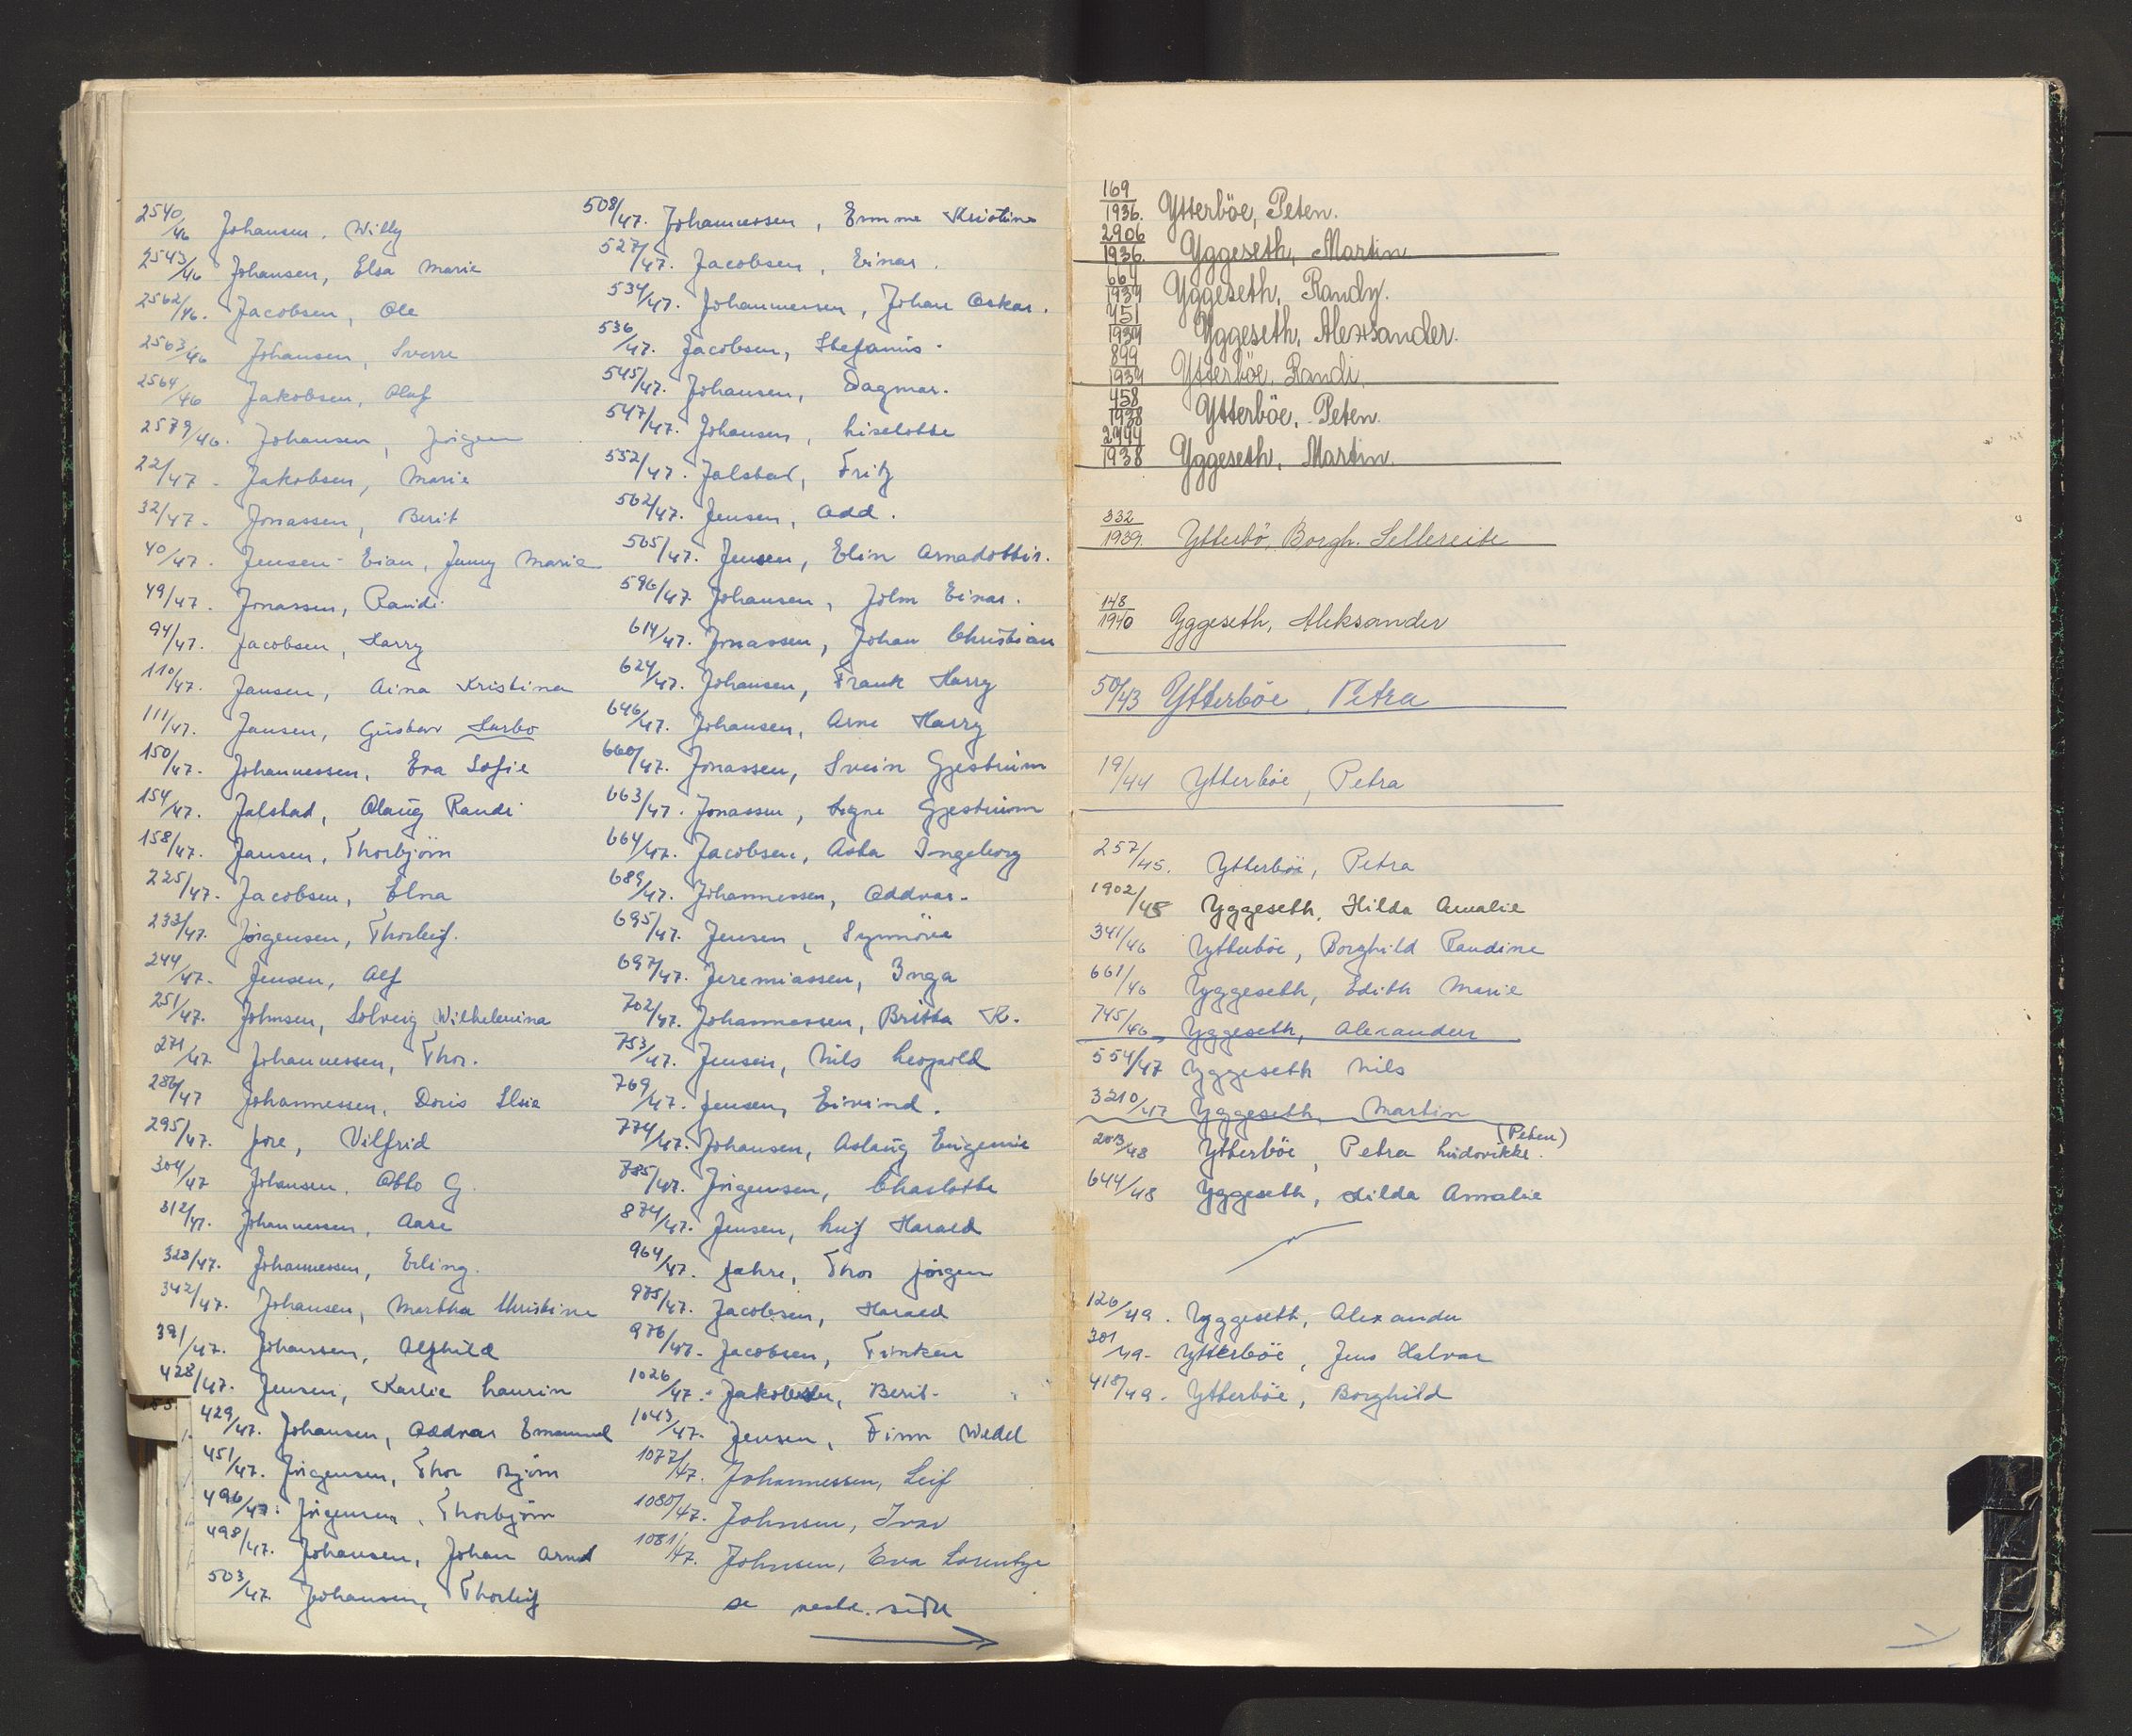 2540/46 Johansen, Willy
2543/46 Johansen, Elsa Marie
2562/46. Jacobsen, Ole
2563/46 Johansen, Sverre
2564/46 Jakobsen, Olaf
2579/46. Johansen, Jörgen
22/47 - Jakobsen, Marie
32/47 - Jonassen, Berit
40/47. Jensen-Eian, Jenny Marie
49/47. Jonassen, Randi
94/47. Jacobsen, Harry
110/47. Jansen, Aina Kristina
111/47. Jansen, Gustav Harbo
150/47. Johannessen, Eva Sofie
154/47. Jalstad, Olaug Randi
158/47. Jansen, Thorbjörn
225/47. Jacobsen, Elna
233/47. Jörgensen, Thorleif.
244/47. Jensen, Alf
251/47. Johnsen, Solveig Wilhelmina
271/47 Johannessen, Thor.
286/47 Johannessen, Doris Elsie
295/47. Jore, Vilfrid
304/47 Johansen, Otto G.
312/47. Johannessen, Aase
323/47. Johannessen, Erling.
342/47. Johansen, Martha Christine
391/47. Johansen, Alfhild
428/47. Jensen, Karlie Laurin
429/47. Johansen, Oddvar Emanuel
451/47. Jörgensen, Thor Björn
496/47. Jörgensen, Thorbjörn
498/47. Johansen, Johan Arnd
503/47. Johansen, Thorleif
508/47. Johannessen, Emma Kristine
527/47. Jacobsen, Einar.
534/47. Johannessen, Johan Oskar.
536/47. Jacobsen, Stefanus.
545/47. Johansen, Dagmar.
547/47. Johansen, Liselotte
552/47. Jalstad, Fritz
562/47. Jensen, Odd.
565/47. Jensen, Elin Arnadottir.
596/47 Johansen, John Einar.
614/47. Jonassen, Johan Christian
624/47. Johansen, Frank Harry
646/47. Johansen, Arne Harry
660/47. Jonassen, Svein Gjestrum
663/47. Jonassen, Signe Gjestrum
664/47. Jacobsen, Asta Ingeborg
689/47. Johannessen, Oddvar.
695/47. Jensen, Synnöve
697/47. Jeremiassen, Inga
702/47. Johannessen, Britta K.
753/47. Jensen, Nils Leopold
769/47. Jensen, Eivind.
774/47. Johansen, Aslaug Eugenie
785/47. Jörgensen, Charlotte
874/47. Jensen, Leif Harald
964/47. Jahre, Thor Jörgen
975/47. Jacobsen, Harald
976/47. Jacobsen, Finken
1026/47. Jakobsen, Berit.
1043/47. Jensen, Finn Wedel
1077/47. Johannessen, Leif
1080/47. Johnsen, Ivar
1081/47. Johnsen, Eva Lorentze
se neste side
169/1936. Ytterböe, Peter.
2906/1936. Yggeseth, Martin
664/1937 Yggeseth, Randy.
751/1937 Yggeseth, Alexsander.
899/1937 Ytterböe, Randi.
458/1938 Ytterböe, Peter.
2794/1938 Yggeseth, Martin.
332/1939. Ytterbö, Borgh. Sellereite
148/1940 Yggeseth, Aleksander
50/43 Ytterböe, Petra
19/44 Ytterböe, Petra
257/45. Ytterböe, Petra
1902/45 Yggeseth, Hilda Amalie
341/46 Ytterböe, Borghild Randine
661/46 Yggeseth, Edith Marie
745/46 Yggeseth, Alexander
554/47 Yggeseth Nils
3210/47 Yggeseth, Martin
(Peter)
203/48 Ytterböe, Petra Ludovikke.
644/48 Yggeseth, Hilda Amalie
126/49. Yggeseth, Alexander
301/49- Ytterböe, Jens Halvar
418/49. Ytterböe, Borghild